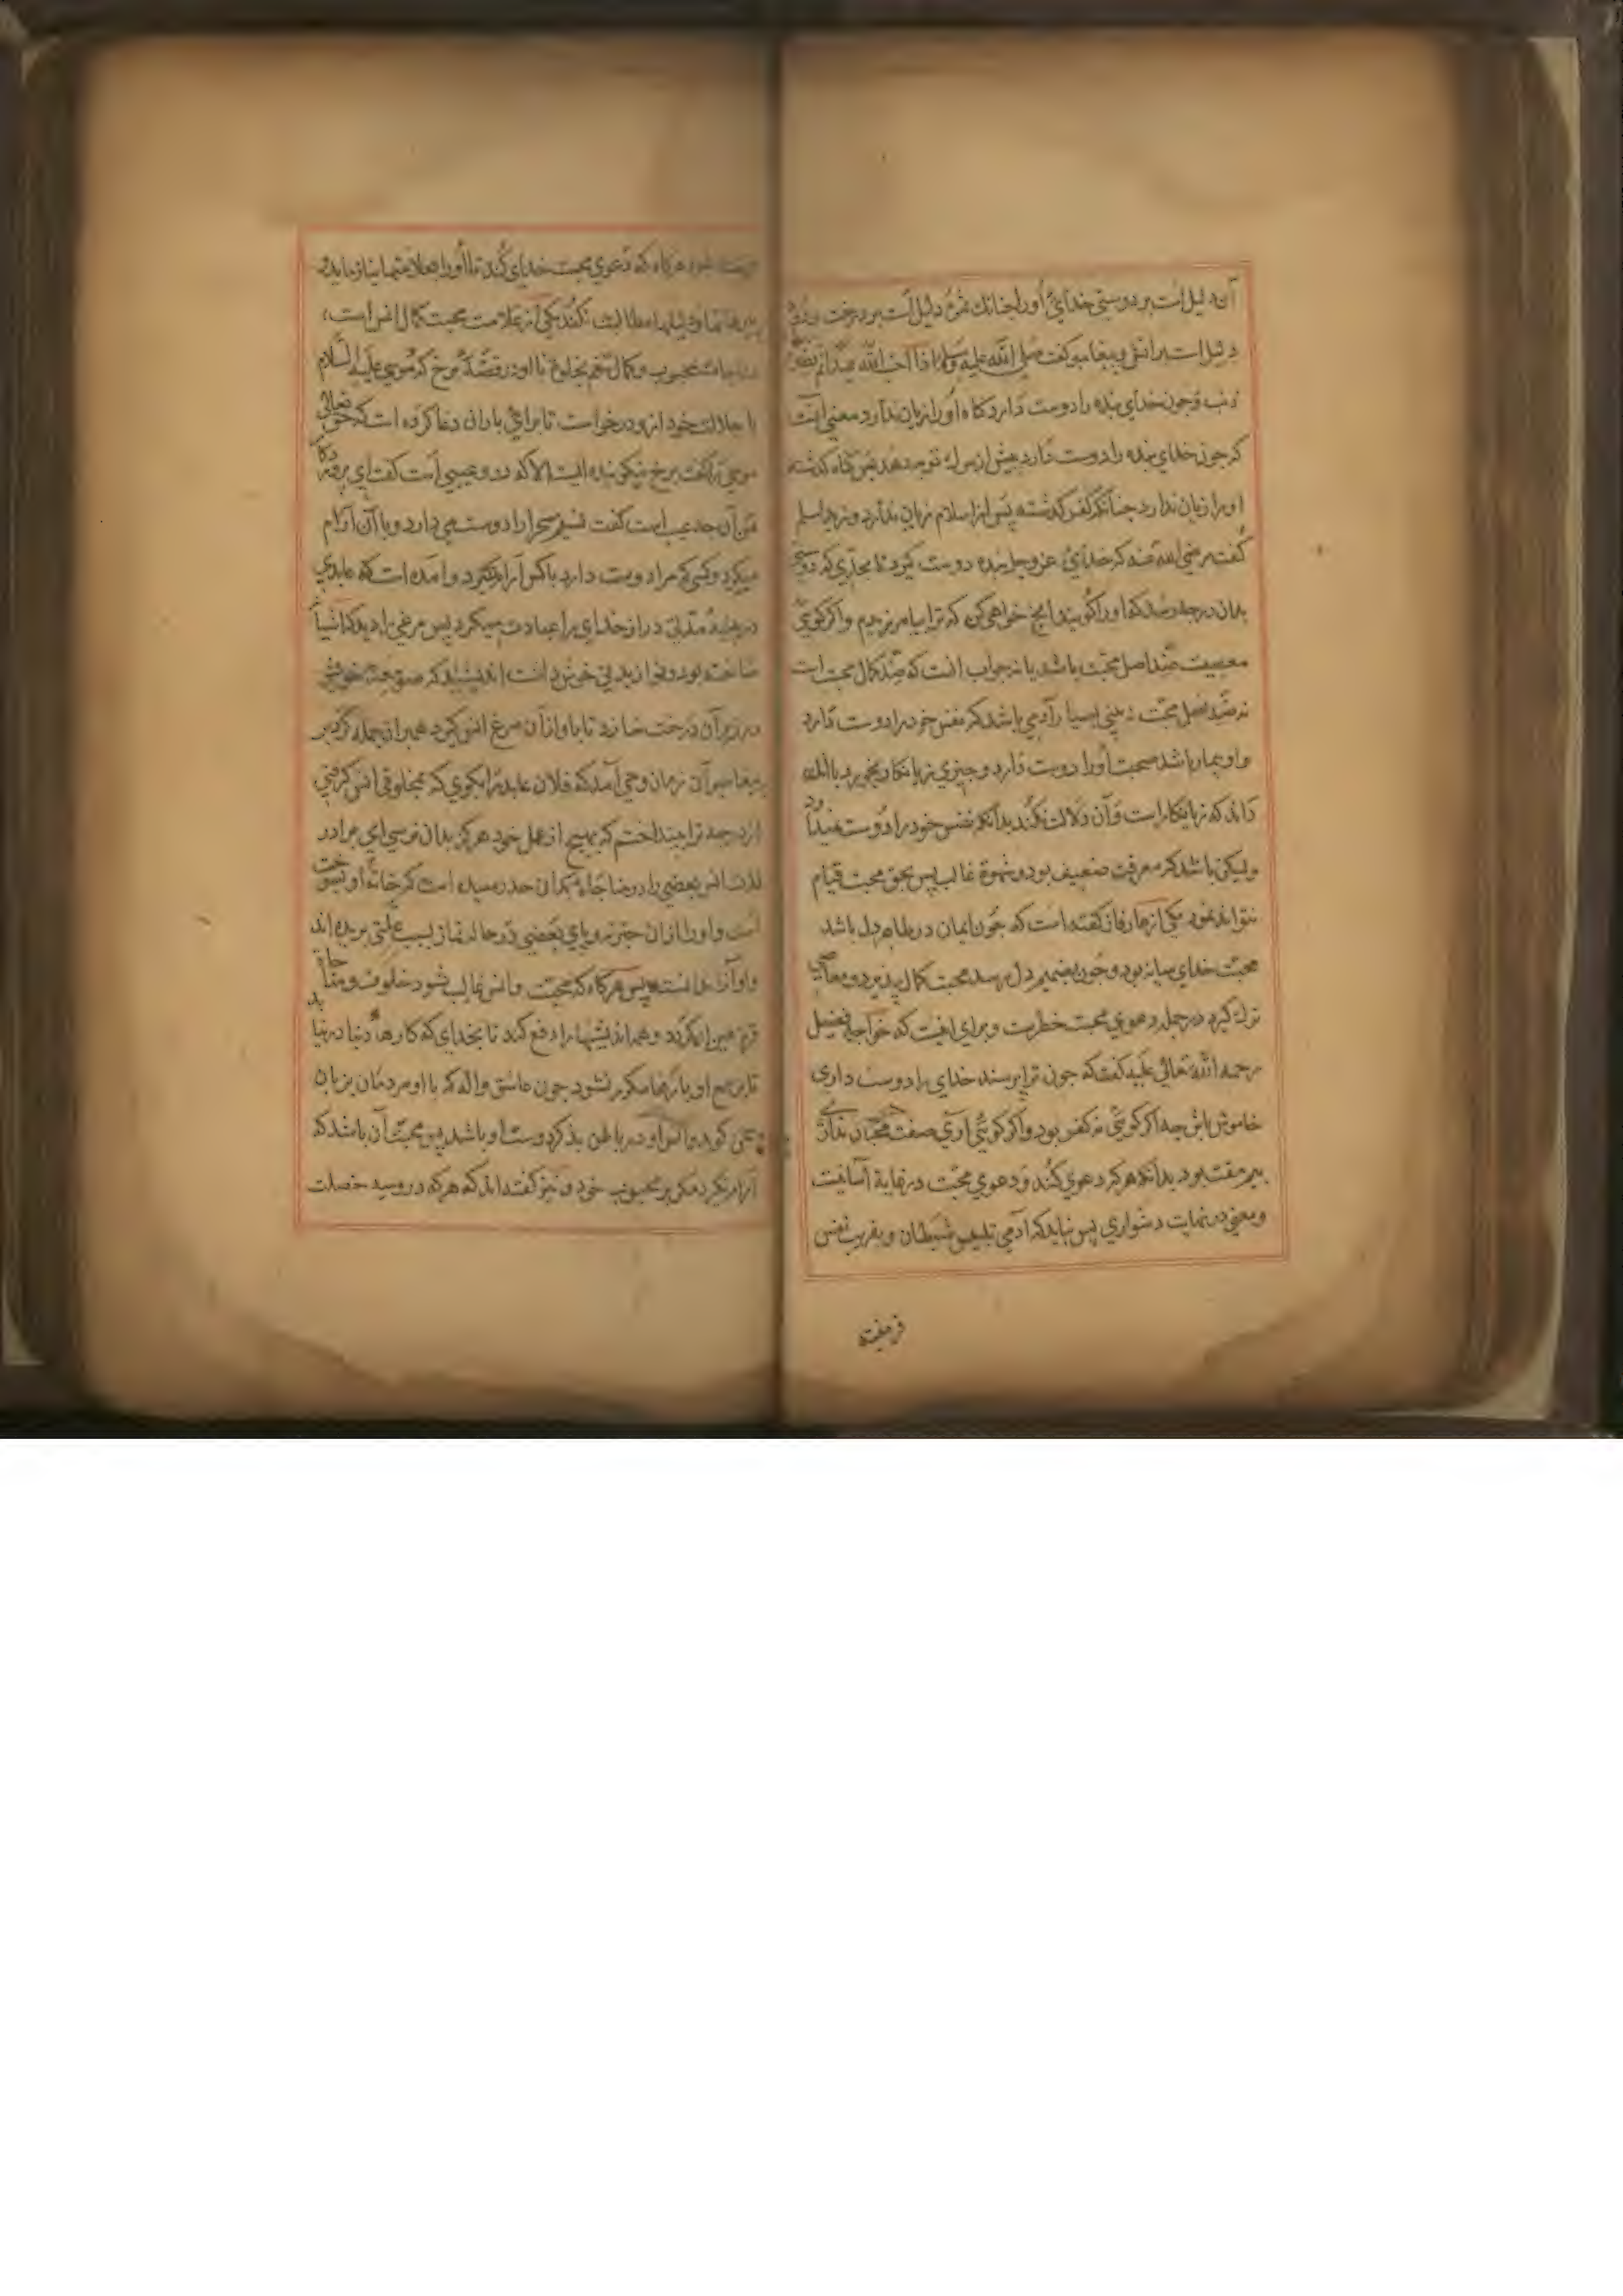 آن دلیل است بر دوستی خدای اورا چنانک ثمره دلیل است بر درخت و دود
دلیل است بر آتش و پیغامبر گفت صلی الله علیه وسلم اذا احب الله عبدا لم یضره
ذنب و جون خدای بنده را دوست دارد کناه اورا زیان ندارد معنی آنست
که جون خدای بنده را دوست دارد پیش از مرك توبه دهد پس کناه کذشته
اورا زیان ندارد جنانکه کفر کذشته پس از اسلام زیان ندارد و زید اسلم
گفت رضی الله عنه که خدای عز وجل بنده دوست کیرد تا بحدی که دوستی
بدان درجه رسد که اورا کویند انج خواهی کن که ترا بیامرزیدم واکر کوی
معصیت ضد اصل محبت باشد یا نه جواب انست که ضد کمال محبت است
نه ضد اصل محبت نه بینی بسیار آدمی باشد که نفس خود را دوست دارد
واو بیمار باشد صحت اورا دوست دارد و جیزی زیانکار بخورد باانك
داند که زیانکار است و آن دلالت نکند بدانکه نفس خود را دوست نمیدارد
ولیکن باشد که معرفت ضعیف بود و شهوة غالب پس بحق محبت قیام
نتواند نمود یکی از عارفان کفته است که جون ایمان در ظاهر دل باشد
محبت خدای میانه بود و جون بصمیم دل برسد محبت کمال پذیرد و معاصی
ترك کیرد در جمله دعوی محبت خطرست و برای اینست که خواجه فضیل
رحمه الله تعالی علیه کفت که جون ترا پرسند خدای را دوست داری
خاموش باش جه اکر کویی نه کفر بود و اکر کویی اری صفت محبان نداری
پس مقت بود بدانکه هر که دعوی کند و دعوی محبت در غایة آسانیست
ومعنی در نهایت دشواری پس نباید که آدمی بتلبیس شیطان و بفریب نفس
فریفته
فریفته شود هرکاه که دعوی محبت خدای کند تا اورا بعلامتها نیازماید و
ببرهانها و دلیلها مطالبت نکند یکی از علامت محبت کمال انس است،
بمناجات محبوب و کمال تنعم بخلوت با او در قصه برخ که موسی علیه السلام
با جلالت خود از و درخواست تا برای باران دعا کرده است که حق تعالی
موسی را کفت برخ نیکو بنده ایست الا که درو عیبی است کفت ای پروردکار
من آن جه عیب است کفت نسیم سحر را دوست می دارد و با آن آرام
میکیرد و کسی که مرا دوست دارد باکس آرام نکیرد و امده است که عابدی
در بیشه مدتی دراز خدای را عبادت میکرد پس مرغی را دید که آشیانه
ساخته بود و نوا
در زیر آن درخت سازد تا با آواز آن مرغ انس کیرد همبران جمله کرد بر
پیغامبر آن زمان وحی آمد که فلان عابد را بکوی که بمخلوقی انس کرفتی
از درجه ترا بینداختم که بهیج از عمل خود هرکز بدان نرسی ای برادر
لذت انس بعضی را در مناجات بدان حد رسیده است که خانه او بسوخت
است و اورا ازان خبر نه و پای بعضی در حالت نماز بسبب علتی بریده اند
و او آنرا ندانسته پس هرکاه که محبت و انس غالب شود خلوت و مناجات
قره عین او کردد و همه اندیشها را دفع کند تا بحدی که کارهاء دنیا در نیابد
تا بر سمع او بارها مکرر نشود جون عاشق واله که با او مردمان بزبان
سخن کوید و انس او در باطن بذکر دوست او باشد پس محبت آن باشد که
آرام نکیرد مکر بر محبوب خود و نیز کفته اند که هر که درو سه خصلت